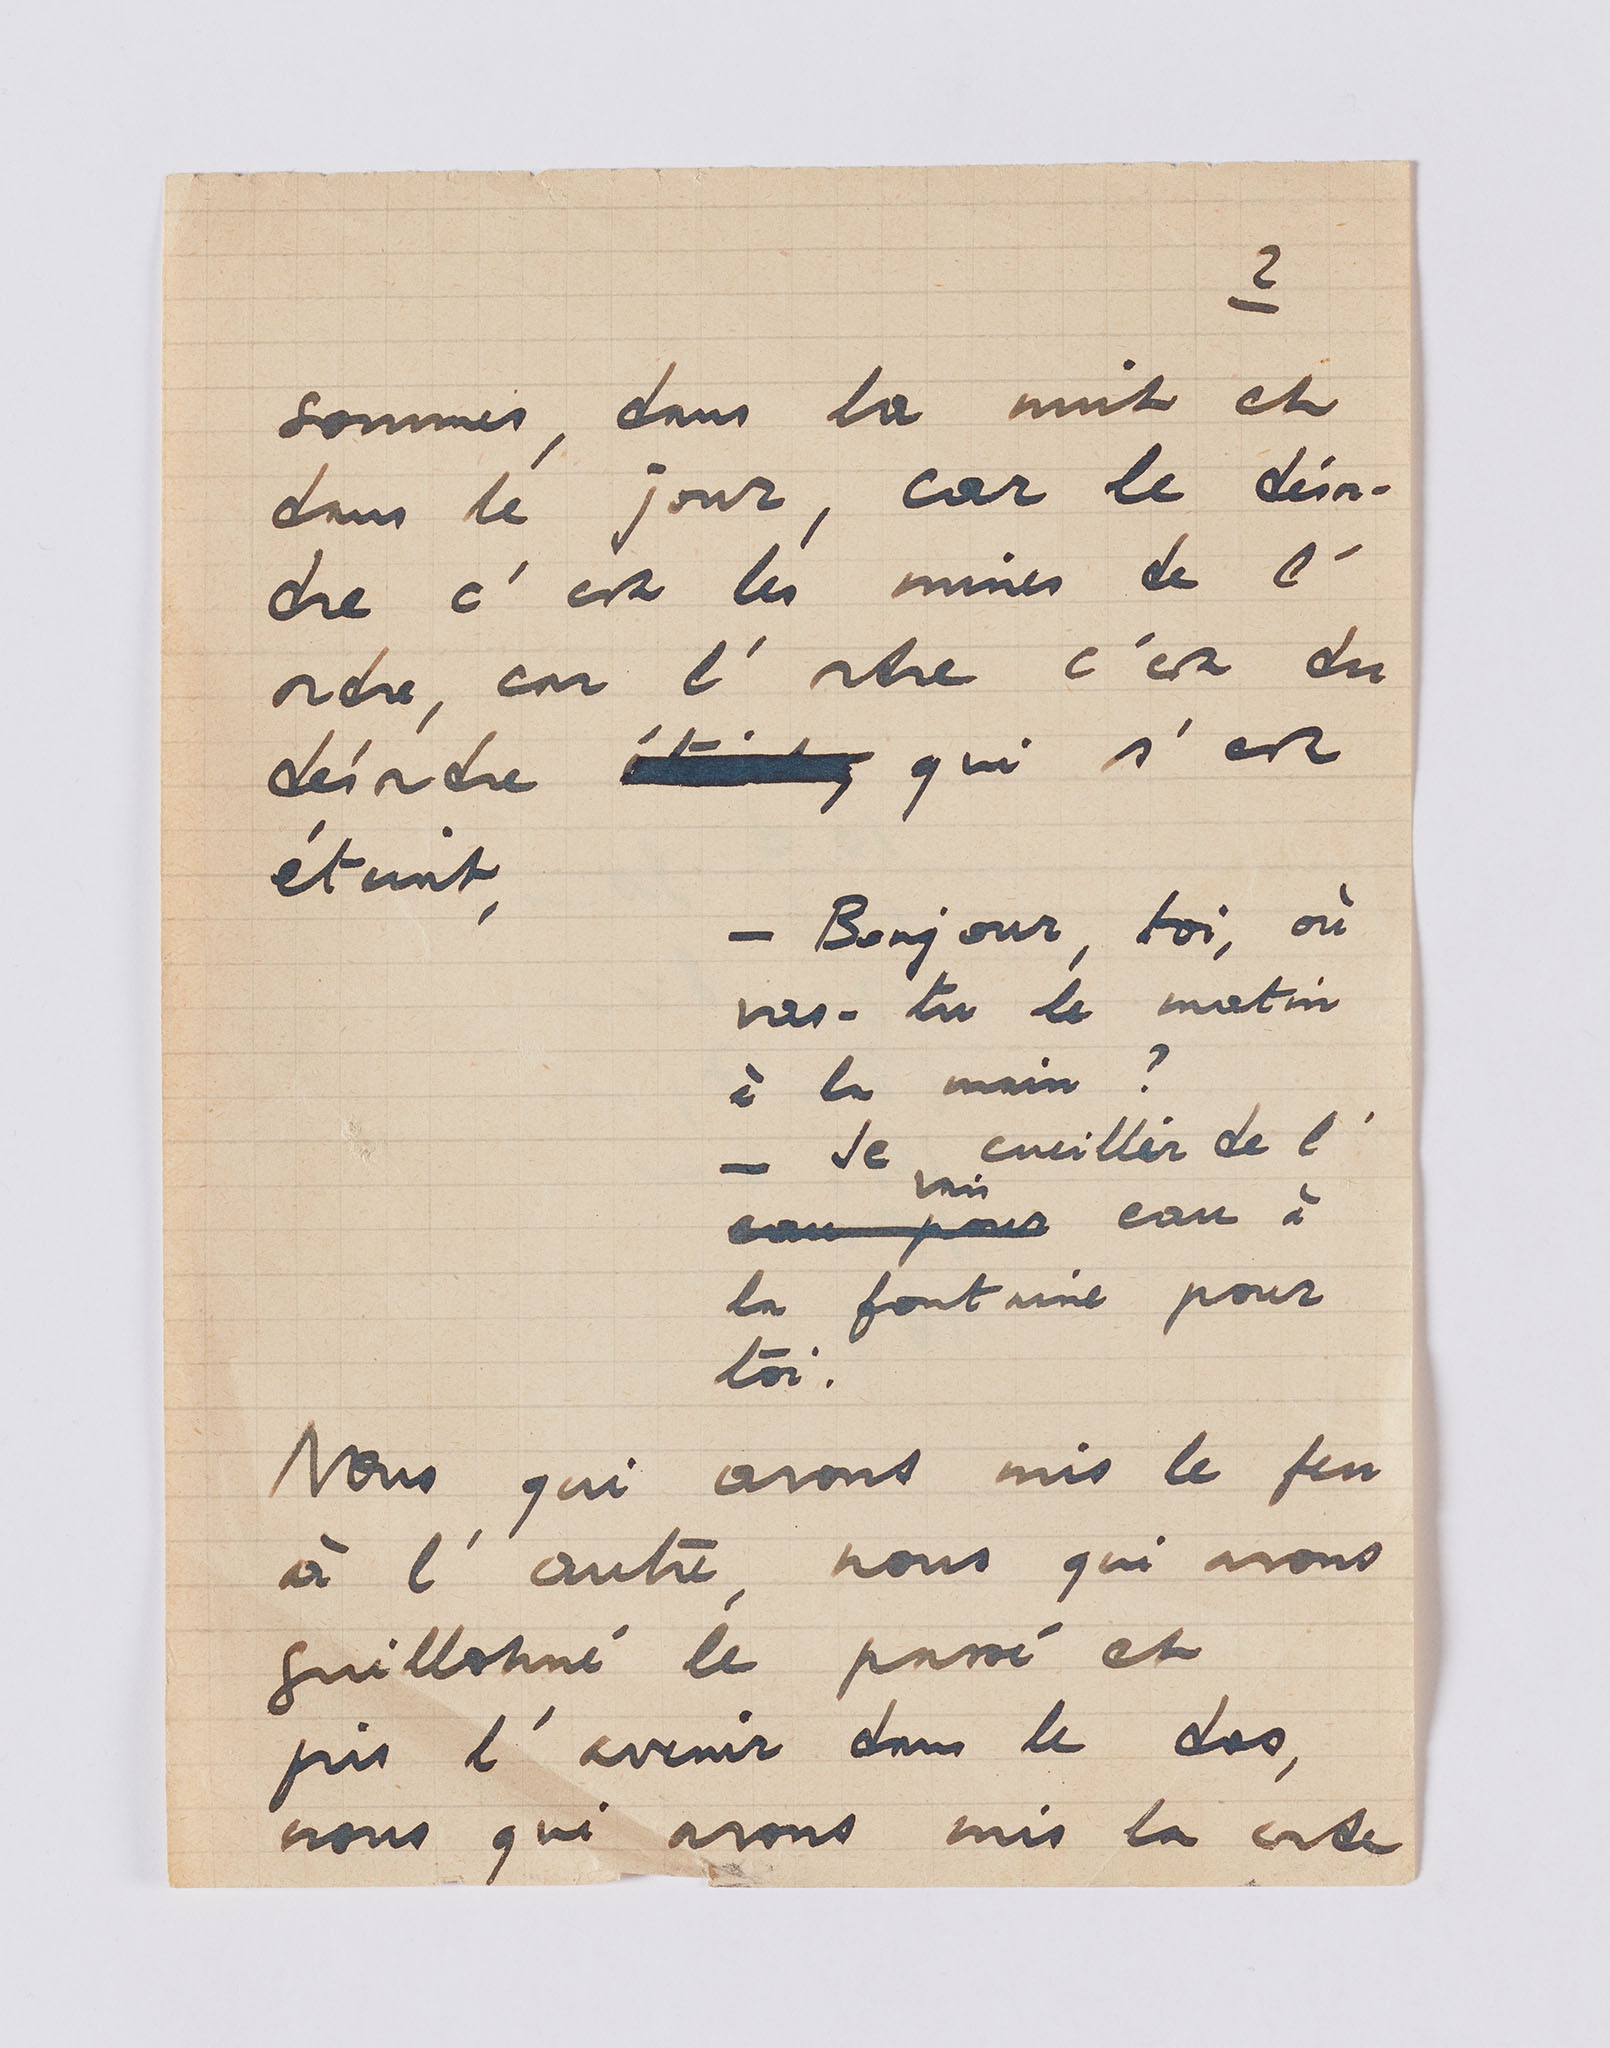 2
sommes, dans la nuit et
dans le jour, car le désor-
dre c'est les ruines de l'
ordre, car l'ordre c'est du
désordre qui s'est
éteint,
– Bonjour, toi, où
vas-tu le matin
à la main ?
– Je vais cueillir de l'
eau pour eau à
la fontaine pour
toi.
Nous qui avons mis le feu
à l'autre, nous qui avons
guillotiné le passé et
pris l'avenir dans le dos,
nous qui avons mis la corde